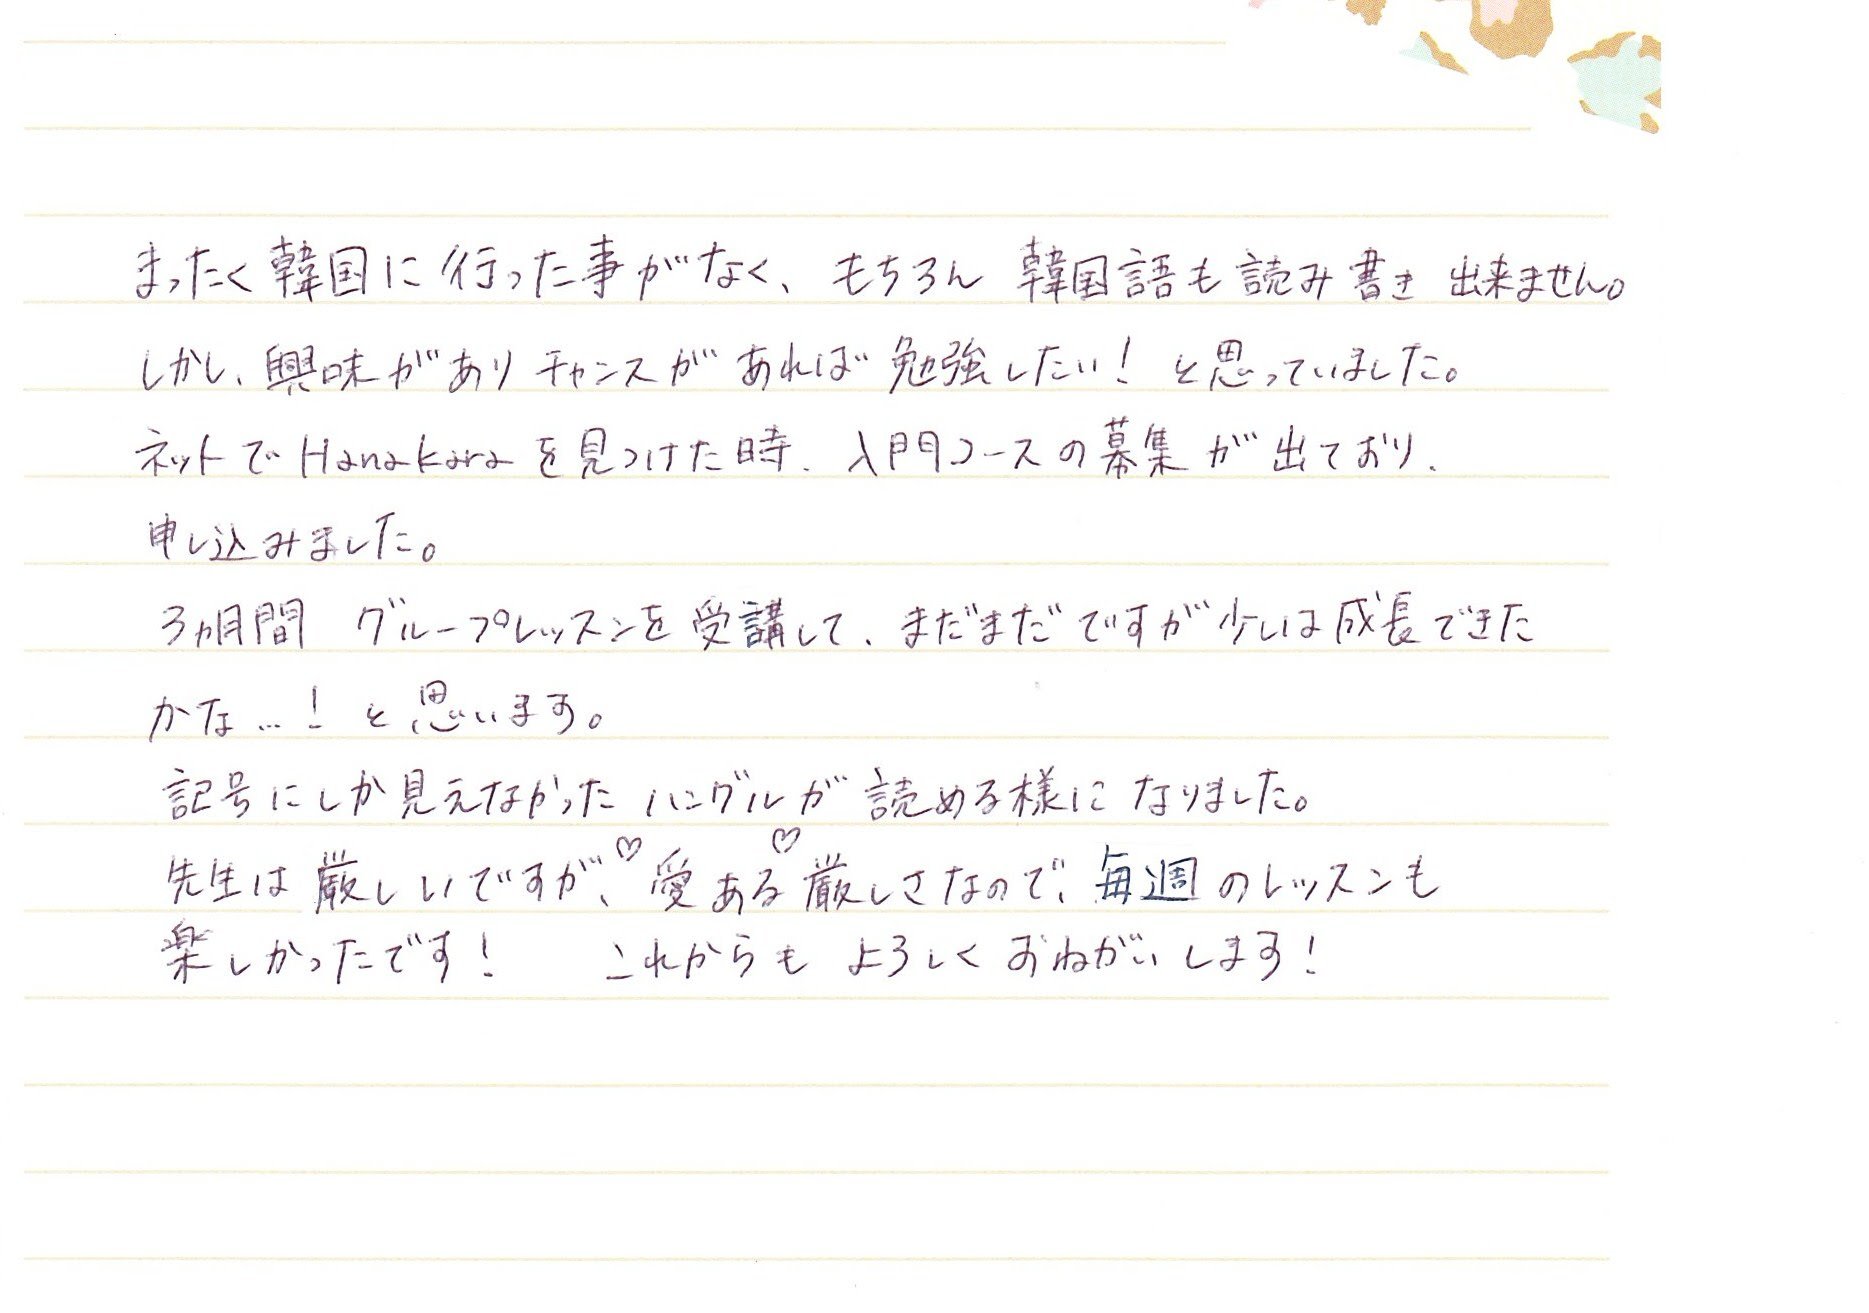 まったく韓国に行った事がなく、もちろん 韓国語も読み書き出来ません。
しかし、興味がありチャンスがあれば勉強したい！と思っていました。
ネットでHanakaraを見つけた時、入門コースの募集が出ており、
申し込みました。
3ヵ月間 グループレッスンを受講して、まだまだですが少しは成長できた
かな…！と思います。
記号にしか見えなかったハングルが読める様になりました。
先生は厳しいですが、♡愛ある♡厳しさなので、毎週のレッスンも
楽しかったです！ これからもよろしくおねがいします！